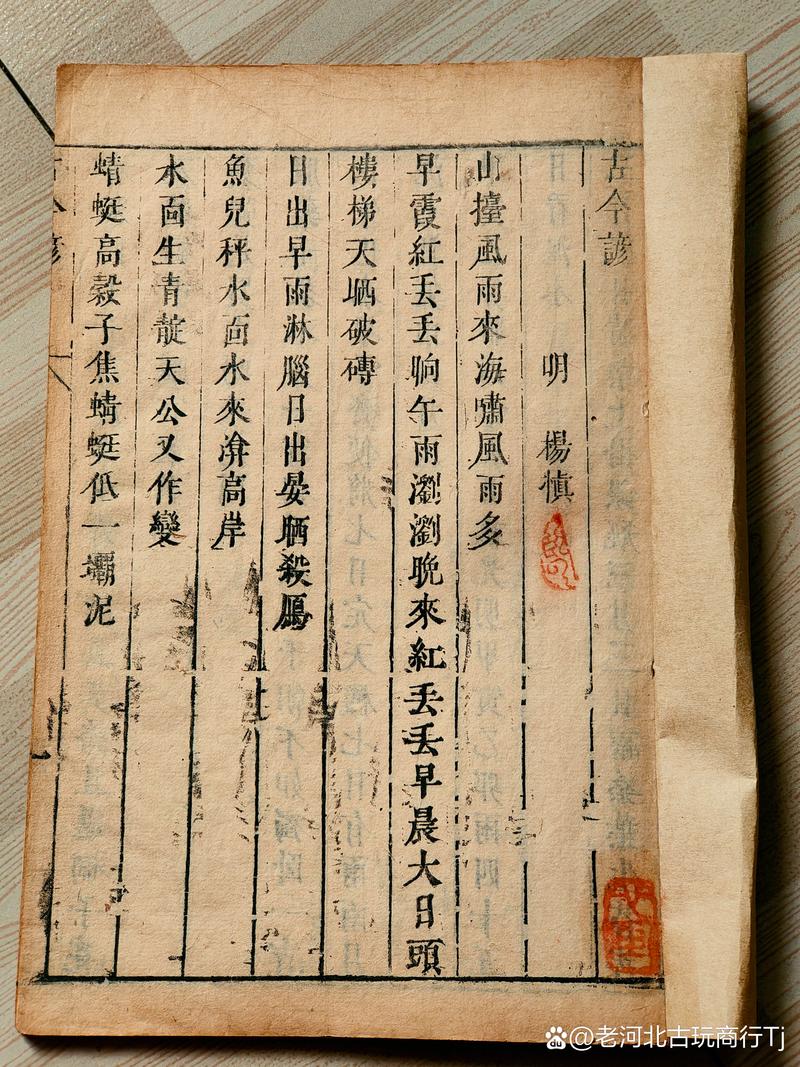 古今諺
明 楊慎
山擡風雨來海嘯風雨多
早霞紅丟丟晌午雨瀏瀏晚來紅丟丟早晨大日頭
樓梯天晒破磚
日出早雨淋腦日出晏晒殺鴈
魚兒秤水面水來渰高岸
水面生青靛天公又作變
蜻蜓高穀子焦蜻蜓低一壩泥
古今諺
一
@老河北古玩商行Tj